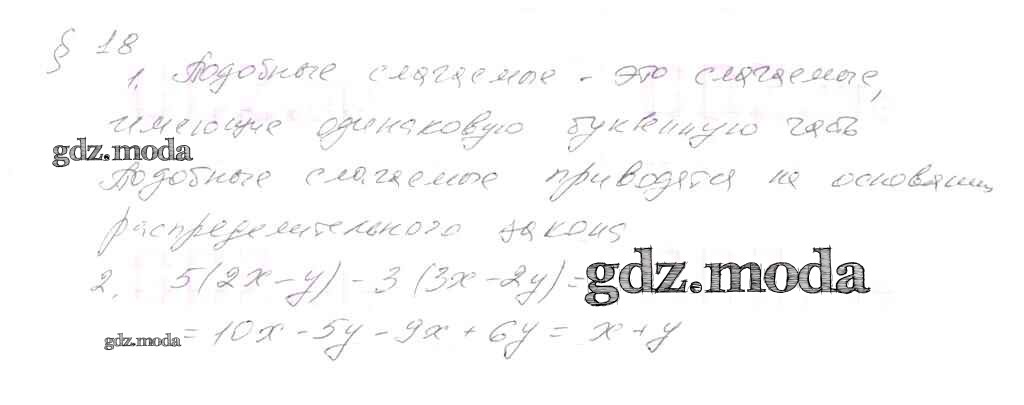 § 18
1. Подобные слагаемые - это слагаемые,
имеющие одинаковую буквенную часть
gdz.moda
Подобные слагаемые приводятся на основании
распределительного закона
2. 5(2x-y) - 3(3x-2y) =
gdz.moda
= 10x - 5y - 9x + 6y = x + y
gdz.moda